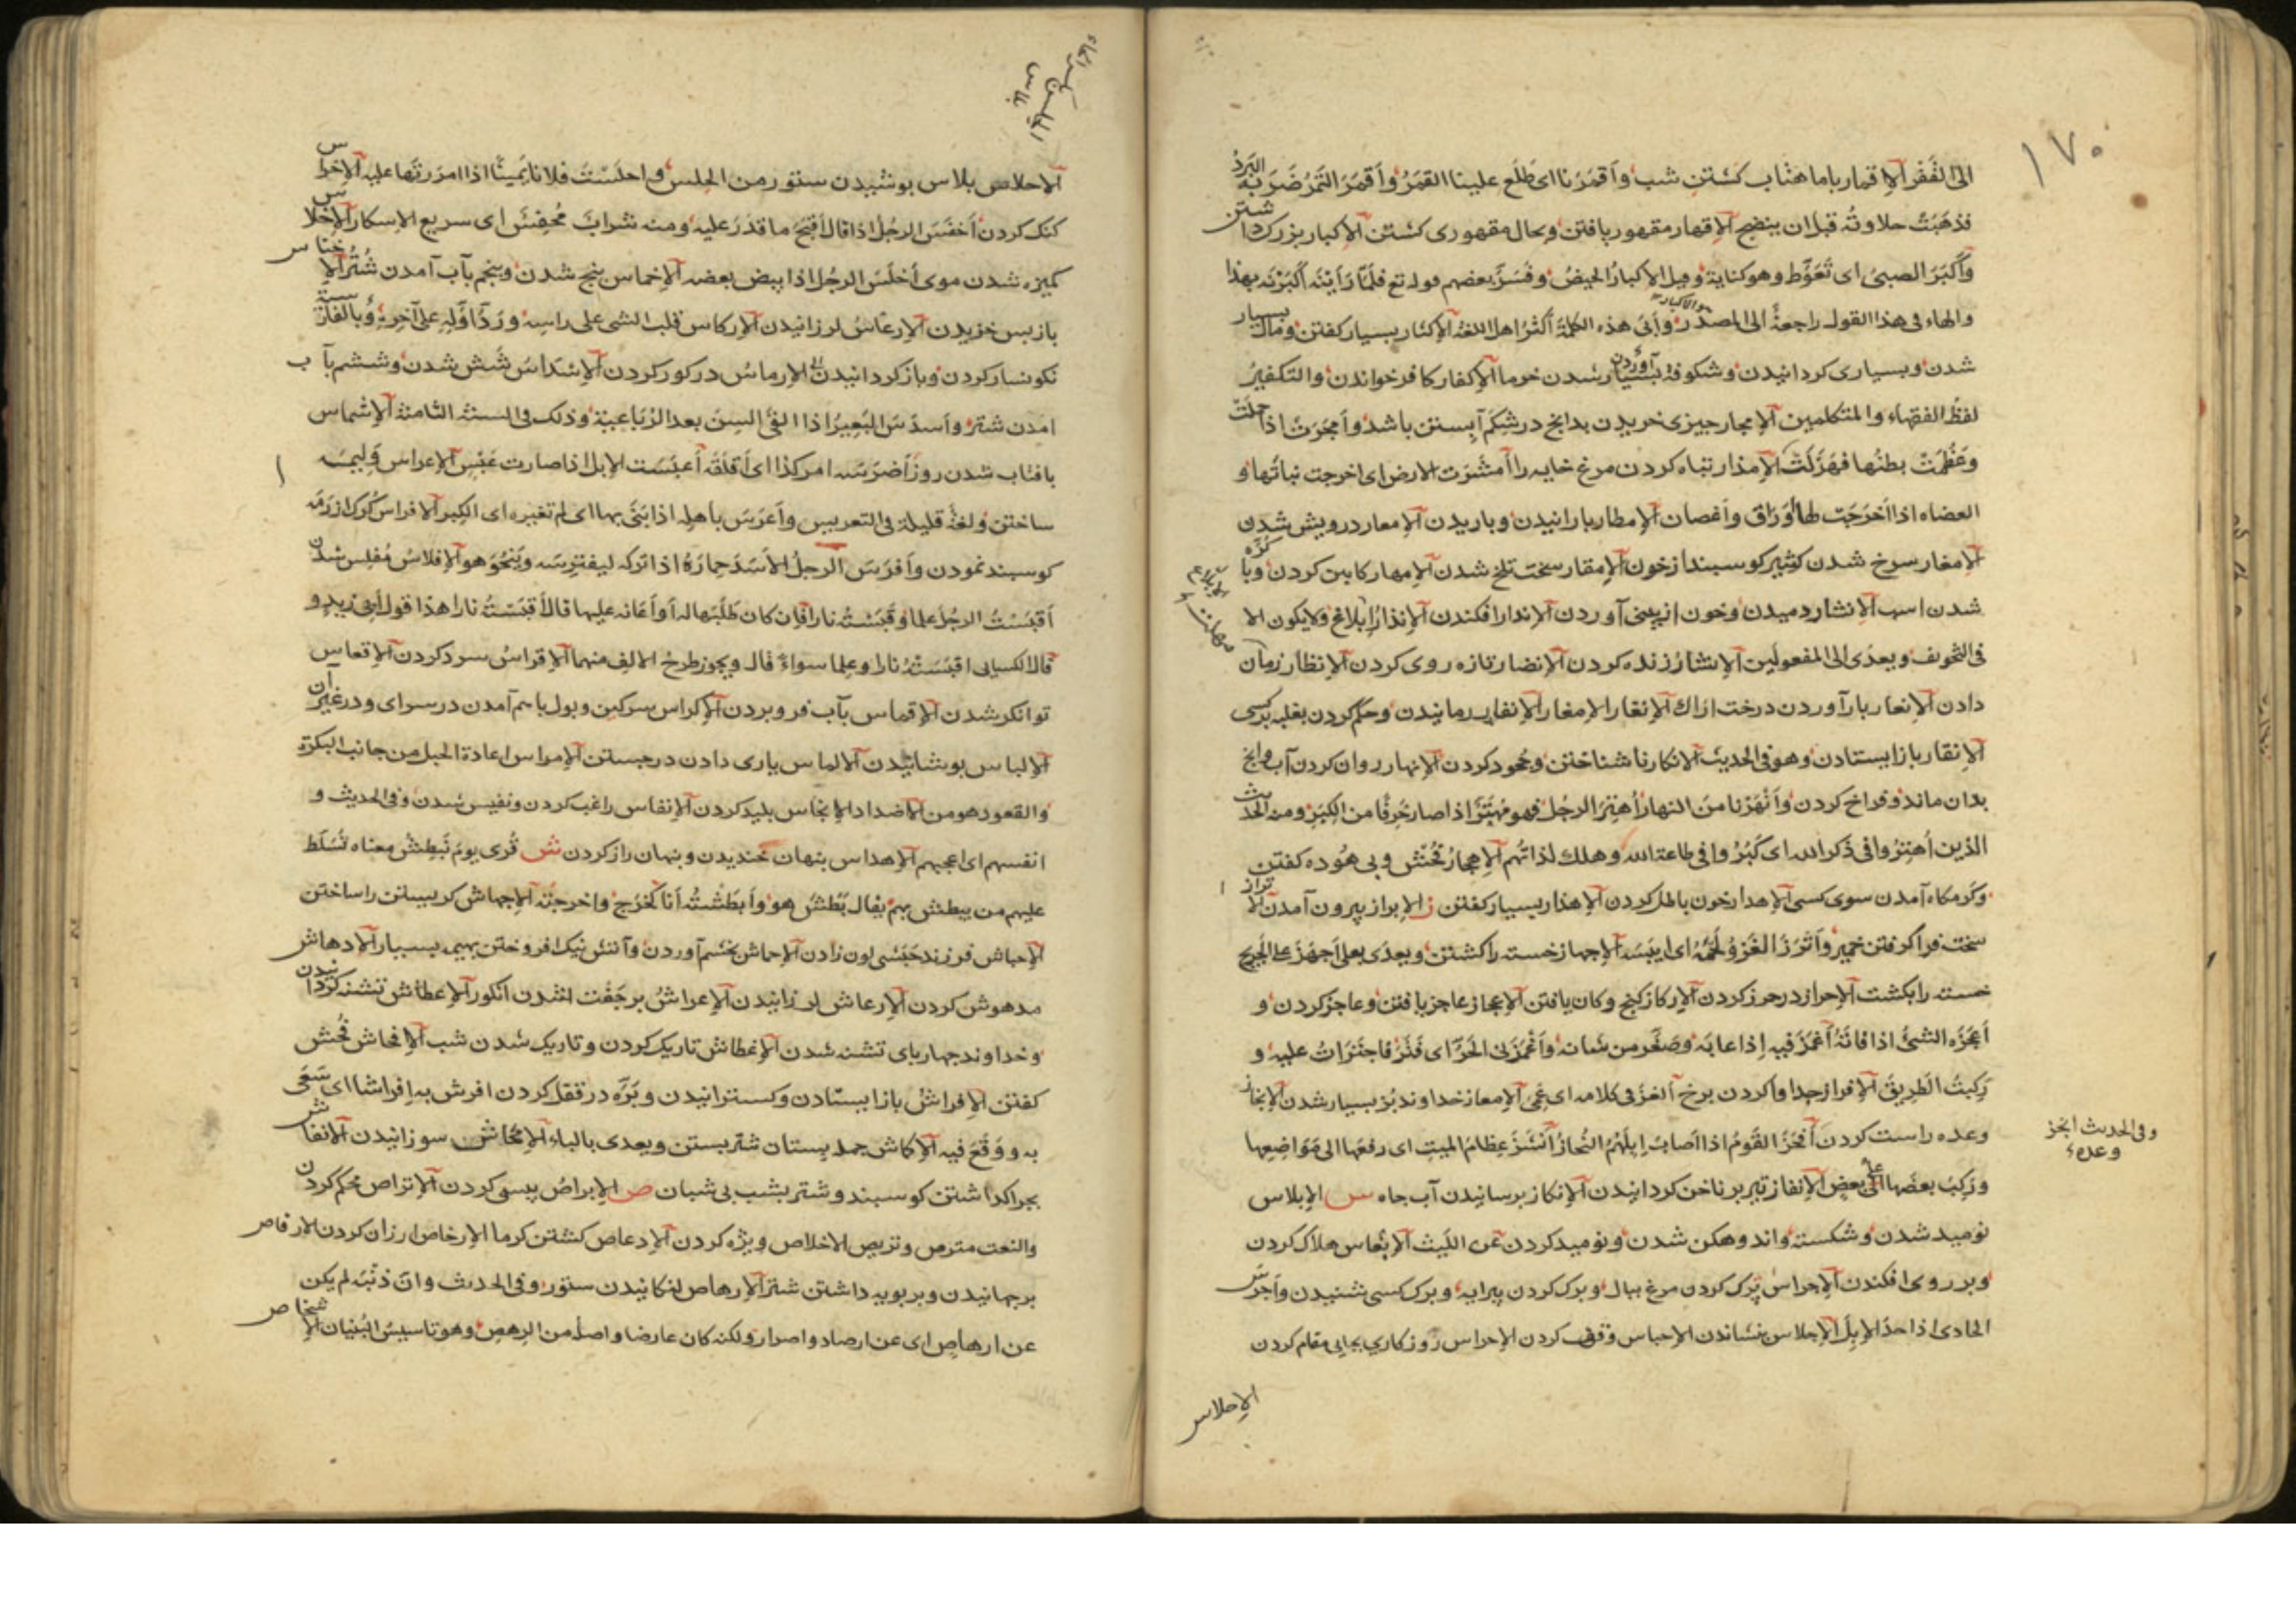 ١٧٠
الى القَفْر الإقمار باماهتاب كشتن شب وأقمَرْنا اى طَلَع علينا القمَرُ وأقمَرَ التَمرُ ضَرَبَهُ البَردُ
فذهَبَتْ حلاوتُه قبل ان ينضج الإقهار مقهور يافتن وبحال مقهورى كشتن الإكبار بزرك داشتن
وأكبَرَ الصبىُ اى تَغَوَّط وهو كناية وقيل الإكبارُ الحيضُ وفَسَّرَ بعضهم قوله تع فلمّا رَأَيْنَه أكْبَرْنَه بهذا
والهاء فى هذا القول راجعةٌ الى المصدر وأبَى هذه الكلمةَ أكثرُ اهل اللغة الإكثار بسيار كفتن ومال بسيار
شدن وبسيارى كردانيدن وشكوفه آوردن بسيار شدن خرما الإكفار كافر خواندن والتكفيرُ
لفظُ الفقهاء والمتكلمين الإمجار جيزى خريدن بدانج در شكم آبستن باشد وأمجَرَت اذا حملَتْ
وعَظُمَتْ بطنُها فهَزَلَتْ الإمذار تباه كردن مرغ خايه را أمشَرَت الارض اى اخرجت نباتُها و
العضاه اذا أخرَجَت لها أوراق وأغصان الإمطار بارانيدن وباريدن الإمعار درويش شدن
الإمغار سرخ شدن شير كوسبند از خون الإمقار سخت تلخ شدن الإمهار كابين كردن وبا كُرّه
شدن اسب الإنثار دميدن وخون از بينى آوردن الإندار افكندن الإنذارُ إبلاغ ولا يكون الا
فى التخويف ويعدّى الى المفعولَين الإنشارُ زنده كردن الإنضار تازه روى كردن الإنظار زمان
دادن الإنعار بار آوردن درخت اراك الإنغار الإمغار الإنفار رمانيدن وحكم كردن بغلبه بر كسى
الإنقار باز ايستادن وهو فى الحديث الإنكار ناشناختن وجحود كردن الإنهار روان كردن آب وانج
بدان ماند وفراخ كردن وأنْهَرْنا منَ النهار أُهتِرَ الرجُل فهو مُهتَرٌ اذا صار خَرِفًا من الكِبَر ومنه الحديث
الذين أُهتِرُوا فى ذكر الله اى كَبُرُوا فى طاعة الله وهلك لذاتُهم الإهجارُ فُحْش وبى هُوده كفتن
وكرمكاه آمدن سوى كسى الإهدار خون باطل كردن الإهذار بسيار كفتن ز الإبراز بيرون آمدن الإتراز
سخت فرا كرفتن خمير وأترَزَ الغَزوُ لَحْمَهُ اى ايبَسَه الإجهاز خسته را كشتن ويعدّى بعلى أجهَزَ على الجريح
خسته را بكشت الإحراز در حرز كردن الإركاز كنج وكان يافتن الإعجاز عاجز يافتن وعاجز كردن و
أعجَزَه الشئُ اذا فاتَهُ أغمَزَ فيه إذا عابَه وصَغَّر من شانه وأغْمَزَنى الحَرُّ اى فَتَرَ فاجتَرَاتُ عليه و
رَكِبتُ الطريقَ الإفراز جدا وا كردن برخ ألغزَ فى كلامه اى عَمّى الإمعاز خداوند بُز بسيار شدن الإنجاز
وعده راست كردن أنحَزَ القَومُ اذا اصابَ إبلَهُمْ النُّحازُ أنشَزَ عِظامَ الميت اى رفعَها الى مَوَاضِعِها
وَرَكبَ بعضَها على بعض الإنفاز تير بر ناخن كردانيدن الإنكاز برسانيدن آب جاه س الإبلاس
نوميد شدن وشكسته واندوهكن شدن ونوميد كردن عن الليث الإتعاس هلاك كردن
وبر روى افكندن الإجراس تَرَك كردن مرغ ببال وبرك كردن پيرايه وبرك كسى شنيدن وأجرَسَ
الحادى اذا حدَا الإبِلَ الإجلاس بنشاندن الإحباس وقف كردن الإحراس روزكارى بجايى مقام كردن
الإحلاس
وفى الحديث انجز
وعده
الإحلاس بلاس بوشيدن ستور من الحِلس واحلَسْتَ فلانا يَمينًا اذا امررتَها عليه الإخراس
كنك كردن أخفَسَ الرجُلُ اذا قال أقبَحَ ما قدَرَ عليه ومنه شرابٌ مُخفِسٌ اى سريع الإسكار الإخلاس
كميزه شدن موى أخلَسَ الرجُل اذا ابيض بعضه الإخماس پنج شدن وپنجم بآب آمدن شُتُر الإخناس
باز پس خزيدن الإرعاسُ لرزانيدن الإركاس قلب الشئ على راسه وردّ أوّلِه على آخره وبالفارسية
نكونسار كردن وباز كردانيدن الإرماسُ در كور كردن الإسْدَاسُ شَش شدن وششم بآب
آمدن شتر وأسدَسَ البَعيرُ اذا القَى السِنَ بعد الرُّبَاعية وذلك فى السنة الثامنة الإشماس
بافتاب شدن روز أضرَسَه امر كذا اى أقلَقَه أعبَسَت الإبل اذا صارت عَبَس الإعراس وَليمه
ساختن ولغةٌ قليلة فى التعريس وأعرَسَ باهله اذا بَنَى بها اى لم تغيره اى الكِبر الإفراس كُرك از رمَه
كوسبند نمودن وأفرَسَ الرجلُ الأسَدَ حِمارَهُ اذا تركه ليفترسَه وينجُوَ هو الإفلاسُ مُفلِس شدن
أقبَسْتُ الرجُلَ علما وقَبَسْتُه نارا فإن كان طَلَبَها له أو أعانَه عليها قال أقبَسْتُه نارا هذا قول ابى زيد و
قال الكسايى اقبَسْتُهُ نارا وعلما سواءٌ قال ويجوز طرحُ الالفِ منهما الإقراسُ سرد كردن الإقعاس
توانكر شدن الإقماس بآب فرو بردن الإكراس سركين وبول باهم آمدن در سراى ودر غير آن
الإلباس بوشانيدن الالماس يارى دادن در جستن الإمراس اعادة الحبل من جانب البكرة
والقعود وهو من الاضداد الإنجاس بليد كردن الإنفاس راغب كردن ونفيس شدن وفى الحديث و
انفسهم اى اعجبهم الإهداس بنهان خنديدن وبنهان راز كردن ش قُرى يوم نُبطِشُ معناه نُسَلِّط
عليهم من يبطش بهم يقال بَطَشَ هو وأبطَشْتُه أنا كخرَج واخرجتُه الإجهاش كريستن را ساختن
الإحباش فرزند حَبَشى لون زادن الإحماش بخشم آوردن وآتش نيك افروختن بهيمه بسيار الإدهاش
مدهوش كردن الإرعاش لرزانيدن الإعراشُ بر جَفْت انشدن انكور الإعطاش تشنه كردانيدن
وخداوند چهارپاى تشنه شدن الإغطاش تاريك كردن وتاريك شدن شب الإفحاش فُحش
كفتن الإفراشُ باز ايستادن وكسترانيدن وبَرَّه در قفل كردن افرش به إفراشا اى سَعَى
به ووَقَعَ فيه الإكماش جمله پستان شتر بستن ويعدى بالباء الإمحاش سوزانيدن الانفاش
بچرا كذاشتن كوسبند وشتر بشب بى شبان ص الإبراصُ پيسى كردن الإتراص محكم كردن
والنعت مترص وتريص الاخلاص ويژه كردن الإدعاص كشتن كرما الإرخاص ارزان كردن الإرقاص
برجهانيدن وبر بويه داشتن شتر الإرهاص لنكانيدن ستور وفى الحديث وانّ ذنْبَه لم يكن
عن ارهاصٍ اى عن ارصاد واصرار ولكنه كان عارضا واصله من الرهص وهو تاسيسُ البُنيان الإشخاص